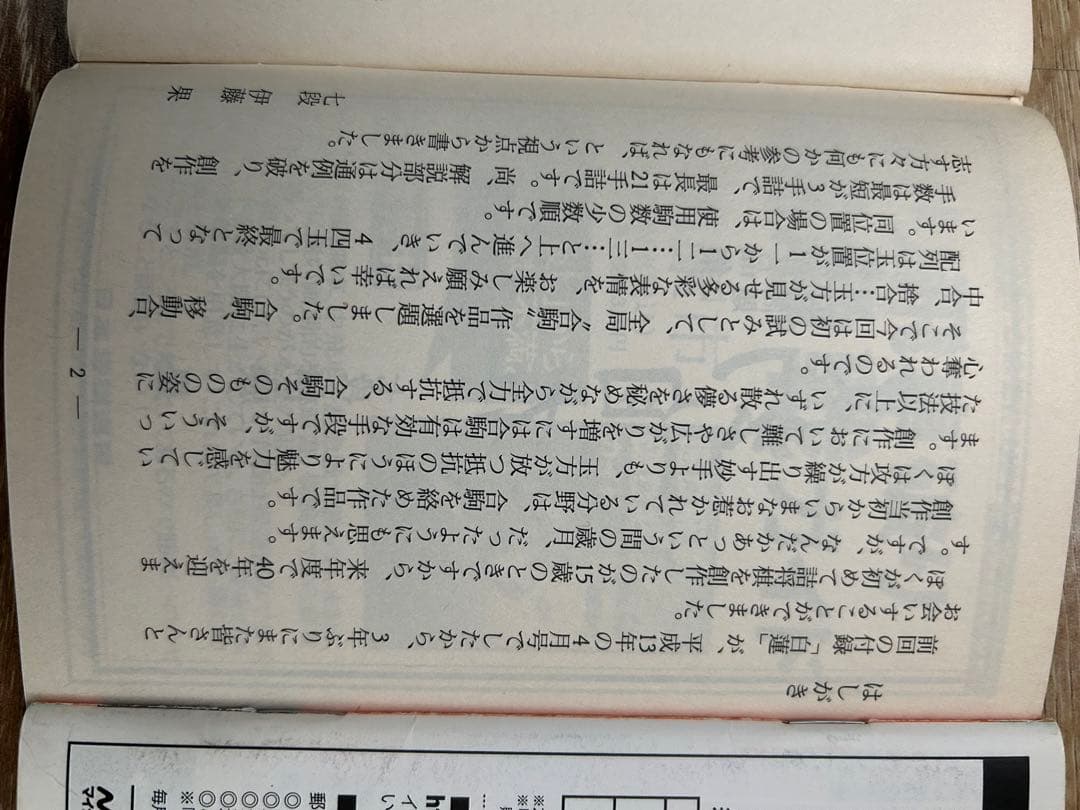 はしがき
前回の付録「白蓮」が、平成13年の4月号でしたから、3年ぶりにまた皆さんと
お会いすることができました。
ぼくが初めて詰将棋を創作したのが15歳のときですから、来年度で40年を迎えま
す。ですが、なんだかあっという間の歳月、だったようにも思えます。
創作当初からいまなお惹かれている分野は、合駒を絡めた作品です。
ぼくは攻方が繰り出す妙手よりも、玉方が放つ抵抗のほうにより魅力を感じてい
ます。創作において難しさや広がりを増すには合駒は有効な手段ですが、そういっ
た技法以上に、いずれ散る儚さを秘めながら全力で抵抗する、合駒そのものの姿に
心奪われるのです。
そこで今回は初の試みとして、全局〝合駒〟作品を選題しました。合駒、移動合、
中合、捨合…玉方が見せる多彩な表情を、お楽しみ願えれば幸いです。
配列は玉位置が1一から1二…1三…と上へ進んでいき、4四玉で最終となって
います。同位置の場合は、使用駒数の少数順です。
手数は最短が3手詰で、最長は21手詰です。尚、解説部分は通例を破り、創作を
志す方々にも何かの参考にもなれば、という視点から書きました。
七段 伊藤 果
― 2 ―